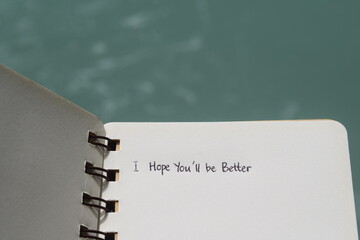 I Hope You'll be Better